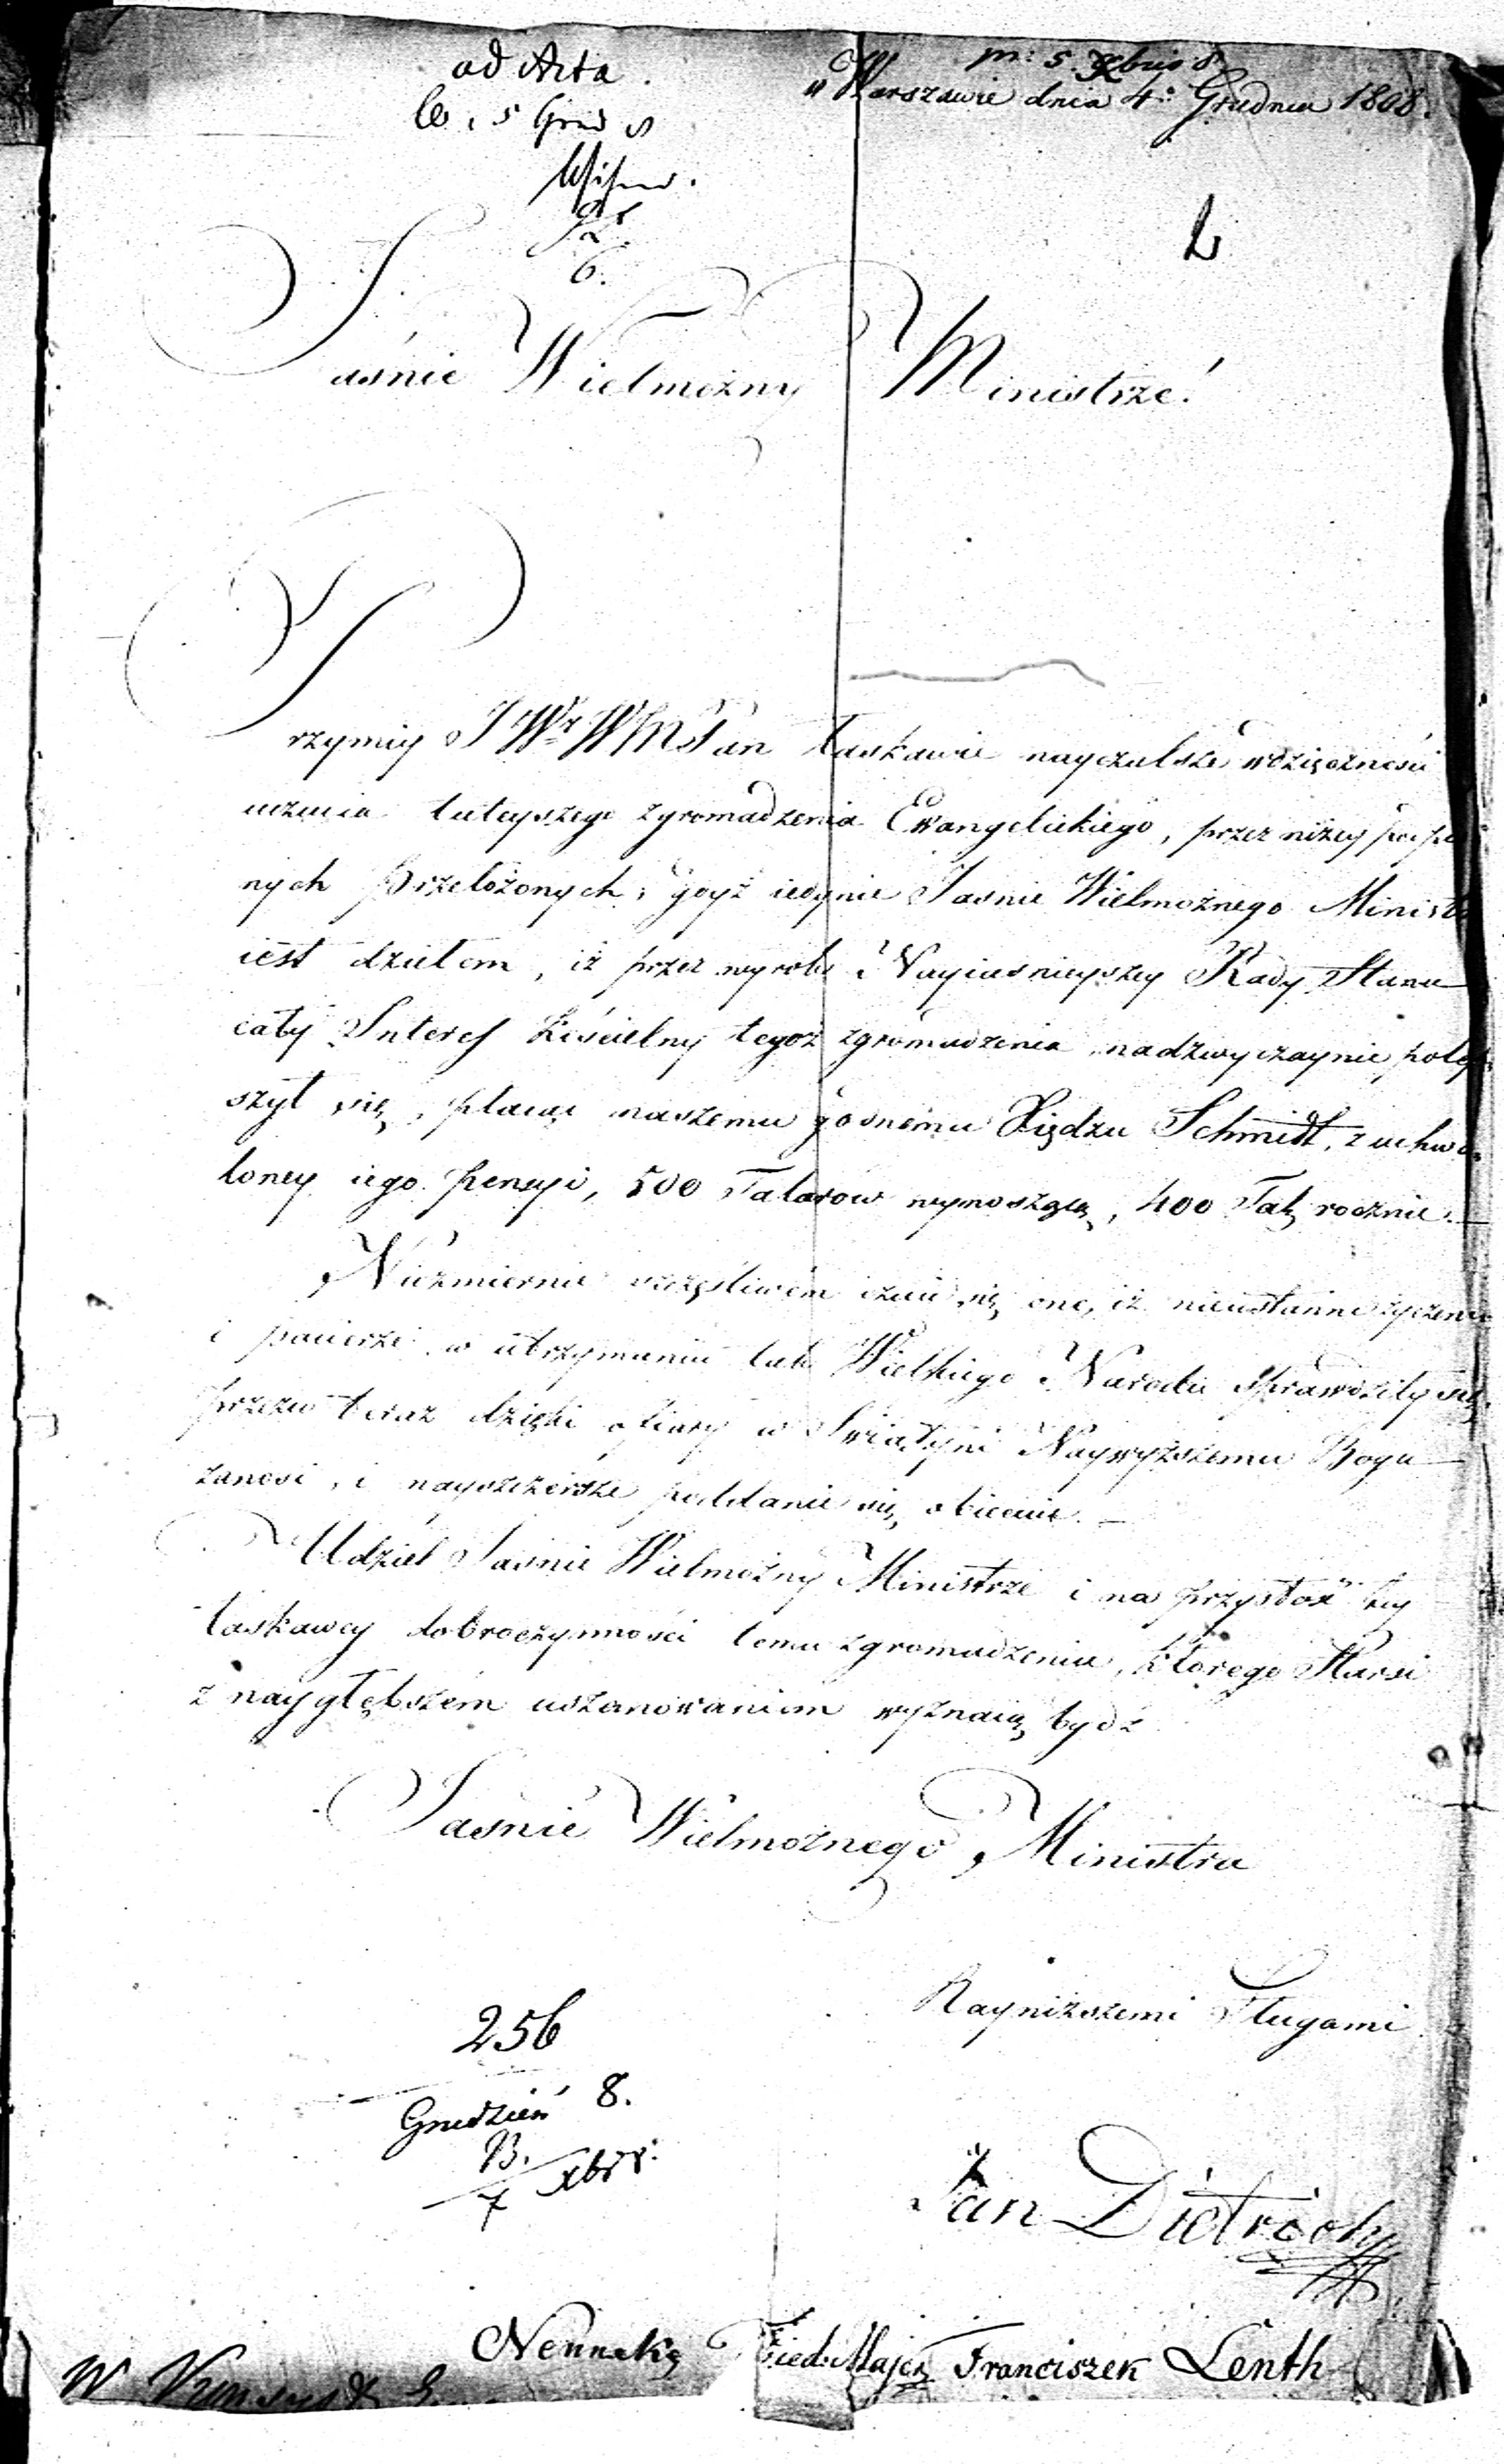 ad Acta.
5 Grud 8
w Warszawie dnia 4º Grudnia 1808.
6.
Jaśnie Wielmożny Ministrze!
Przymiy JWy WMPan łaskawie nayczulsze wdzięczności
uczucia tuteyszego zgromadzenia Ewangelickiego, przez niżey podpi
nych Przełożonych, gdyż iedynie Jasnie Wielmożnego Ministr
iest dziełem, iż przez wyrok Nayiasnieyszey Rady Stanu
cały Interes Kościelny tegoż zgromadzenia nadzwyczaynie polep
szył się, płacąc naszemu godnemu Xiędzu Schmidt, z uchwa
loney iego pensyi, 500 Talarow wynoszącey, 400 Tal rocznie.
Niezmiernie szczęśliwem czuie się one, iż nieustanne życzenia
i pacierze w utrzymaniu tak Wielkiego Narodu sprawdziły się,
przezco teraz dzięki ofiary w Swiątyni Naywyższemu Bogu
zanosi, i nayszczersze poddanie się obiecuie.
Udziel Jasnie Wielmożny Ministrze i na przyszłość tey
łaskawey dobroczynności temu zgromadzeniu, ktorego Starsi
z naygłębszem uszanowaniem wyznaią bydź
Jaśnie Wielmożnego Ministra
Nayniższemi Sługami
256
Grudzień 8.
B.
7 Xbr 8.
Jan Dietrich
Fried. Majer Franciszek Lenth